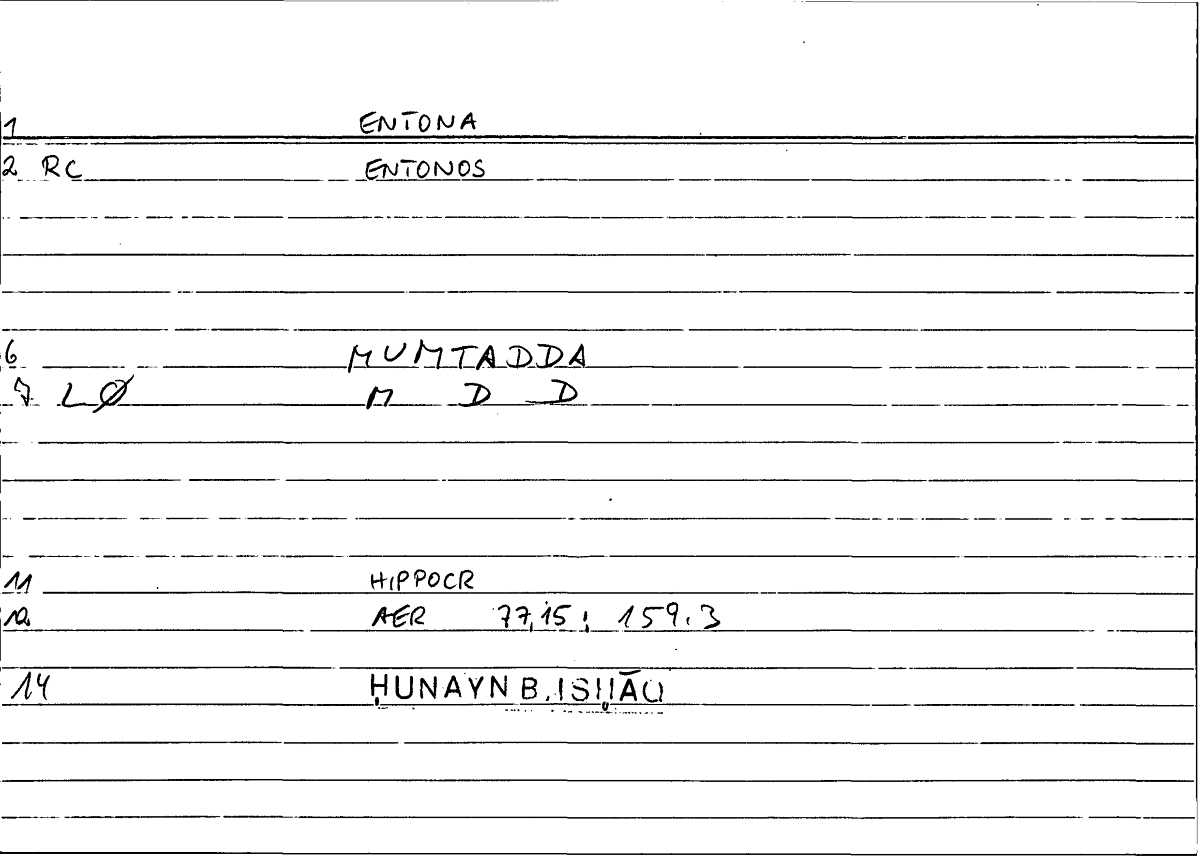 1 ENTONA
2 RC ENTONOS
6 MUMTADDA
7 LØ M D D
11 HIPPOCR
12 AER 77,15; 159.3
14 ḤUNAYN B. ISḤĀQ